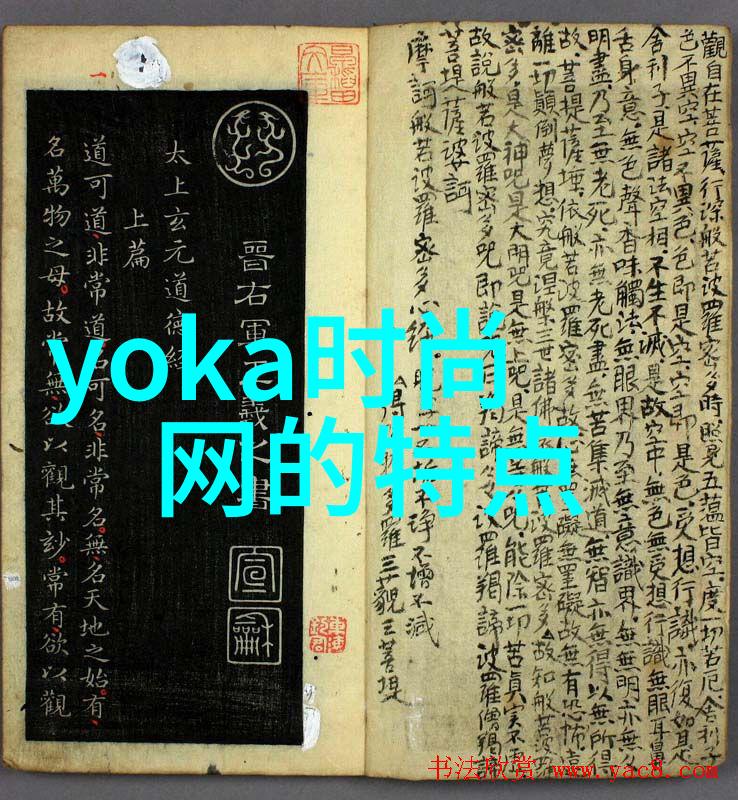 yoka时尚
网的特点
觀自在菩薩行深般若波羅密多時照見五蘊皆空度一切苦厄舍利子
色不異空空不異色色即是空空即是色受想行識亦復如是
舍利子是諸法空相不生不滅是故空中無色無受想行識無眼耳鼻
舌身意無色聲香味觸法無眼界乃至無意識界無無明亦無
明盡乃至無老死亦無老死盡無苦集滅道無智亦無得以無所得
故菩提薩埵依般若波羅密多故礙無罣礙故無有恐怖遠
離一切顛倒夢想究竟涅槃三世諸佛般波羅密多故知般若波
密多是大神咒是大明咒是無上咒是無等咒能除一切苦真實不
故說般若波羅密多咒即說揭諦波羅揭諦波羅僧揭諦
菩提薩婆訶
不淨不增不減
摩訶般若波羅密多心經
得多羅三藐三菩提
晉右軍王羲之書
太上玄元道德經
上篇
道可道非常道名可名非常名無名天地之始有
名萬物之母故常無欲以觀其妙常有欲以觀
宣
龢
书法欣赏 www.yac8.com